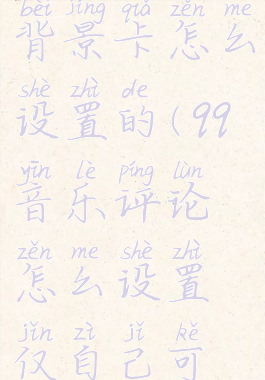 bèi jǐng qiǎ zěn me
背景卡怎么
shè zhì de
设置的(99
yīn lè píng lùn
音乐评论
zěn me shè zhì
怎么设置
jǐn zì jǐ kě
仅自己可